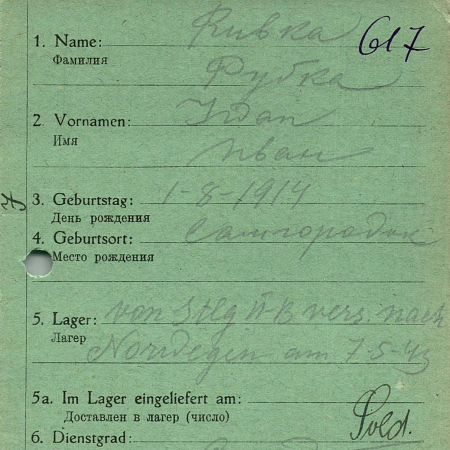 617
1. Name: Рубка
Фамилия Рубка
2. Vornamen: Iван
Имя Иван
3. Geburtstag: 1-8-1914
День рождения
4. Geburtsort: Самгородок
Место рождения
5. Lager: von Stlg II-B vers. nach
Лагер Norwegen am 7-5-43
5a. Im Lager eingeliefert am:
Доставлен в лагер (число)
Sold.
6. Dienstgrad: